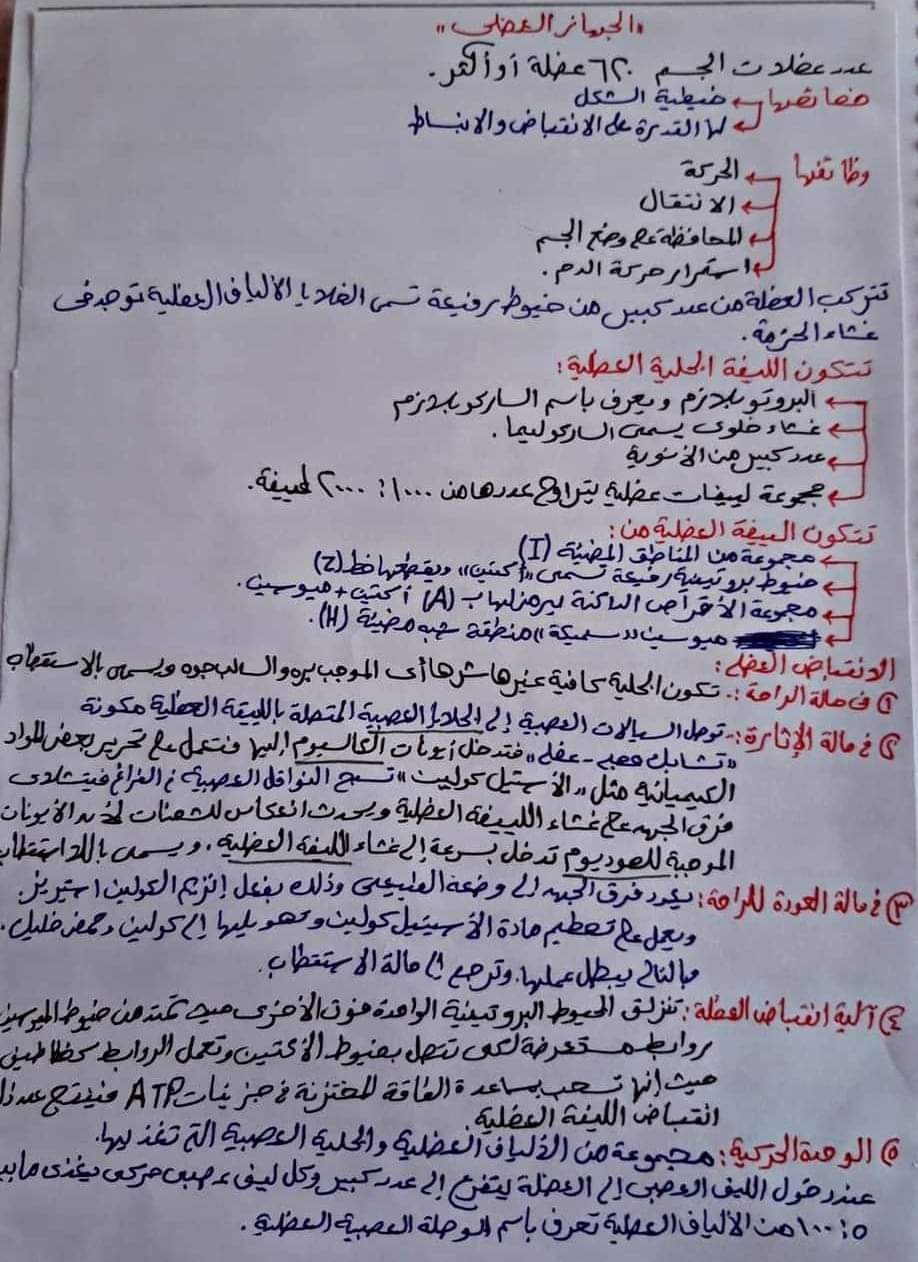 «الجهاز العضلى»
عدد عضلات الجسم ٦٢٠ عضلة أو أكثر.
خصائصها خيطية الشكل
لها القدرة على الانقباض والانبساط
وظائفها الحركة
الانتقال
المحافظة على وضع الجسم
استمرار حركة الدم.
تتركب العضلة من عدد كبير من خيوط رفيعة تسمى الخلايا الألياف العضلية توجد فى
غشاء الحزمة.
تتكون الليفة الخلية العضلية:
البروتوبلازم ويعرف باسم الساركوبلازم
غشاء خلوى يسمى الساركوليما.
عدد كبير من الأنوية
مجموعة لييفات عضلية يتراوح عددها من ١٠٠٠: ٢٠٠٠ لييفة.
تتكون الليفة العضلية من:
مجموعة من المناطق المضيئة (I)
خيوط بروتينية رفيعة تسمى «أكتين» ويقطعها خط (Z)
مجموعة الأقراص الداكنة ويرمز لها ب (A) أكتين + ميوسين.
ميوسين «سميكة» منطقة شبه مضيئة (H).
الانقباض العضلى:
١) فى حالة الراحة:- تكون الخلية كافية غيرها شرها أى الموجب بره والسالب جوه ويسمى بالاستقطاب
٢) فى حالة الإثارة:- توصل السيالات العصبية إلى الخلايا العصبية المتصلة بالليفة العضلية مكونة
«تشابك عصبى - عضلى» فتدخل أيونات الكالسيوم إليها فتعمل على تحرير بعض المواد
الكيميائية مثل «الأستيل كولين» تسبح النواقل العصبية فى الفراغ فيتلاشى
فرق الجهد على غشاء الليفة العضلية ويحدث انعكاس للشحنات لأن الأيونات
الموجبة للصوديوم تدخل بسرعة إلى غشاء الليفة العضلية، ويسمى باللااستقطاب
٣) فى حالة العودة للراحة: يعود فرق الجهد إلى وضعه الطبيعى وذلك بفعل إنزيم الكولين استيريز.
ويعمل على تحطيم مادة الأسيتيل كولين وتحويليها إلى كولين وحمض خليك.
وبالتالى يبطل عملها. وترجع إلى حالة الاستقطاب.
٤) آلية انقباض العضلة: تنزلق الخيوط البروتينية الواحدة فوق الأخرى حيث تمتد من خيوط الميوسين
روابط مستعرضة لكى تتصل بخيوط الأكتين وتعمل الروابط كخطاطيف
حيث إنها تسحب بمساعدة الطاقة المختزنة فى جزيئات ATP فينتج عند ذلك
انقباض الليفة العضلية.
٥) الوحدة الحركية: مجموعة من الألياف العضلية والخلية العصبية التى تغذيها.
عند دخول الليف العصبى إلى العضلة يتفرع إلى عدد كبير وكل ليف عصبى حركى يغذى ما بين
٥: ١٠٠ من الألياف العضلية تعرف باسم الوصلة العصبية العضلية.